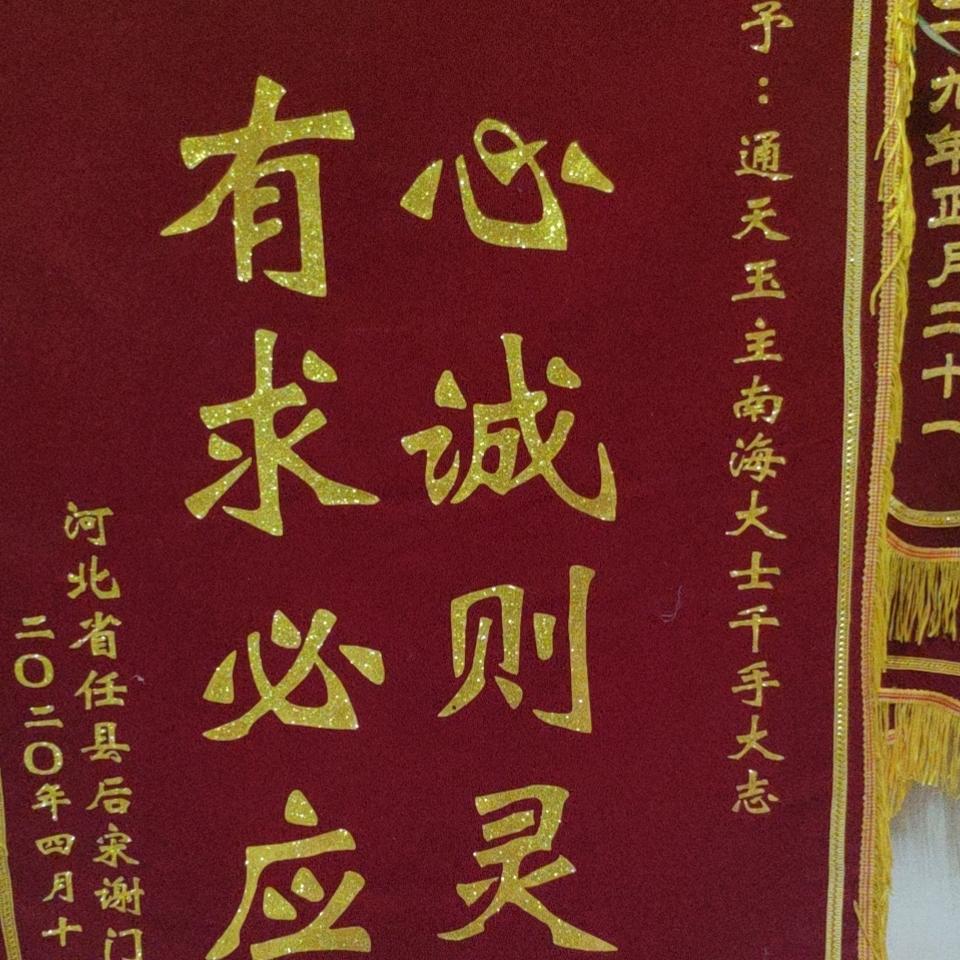 九年正月二十一
予：通天玉主南海大士千手大志
心诚则灵
有求必应
河北省任县后宋谢门
二〇二〇年四月十